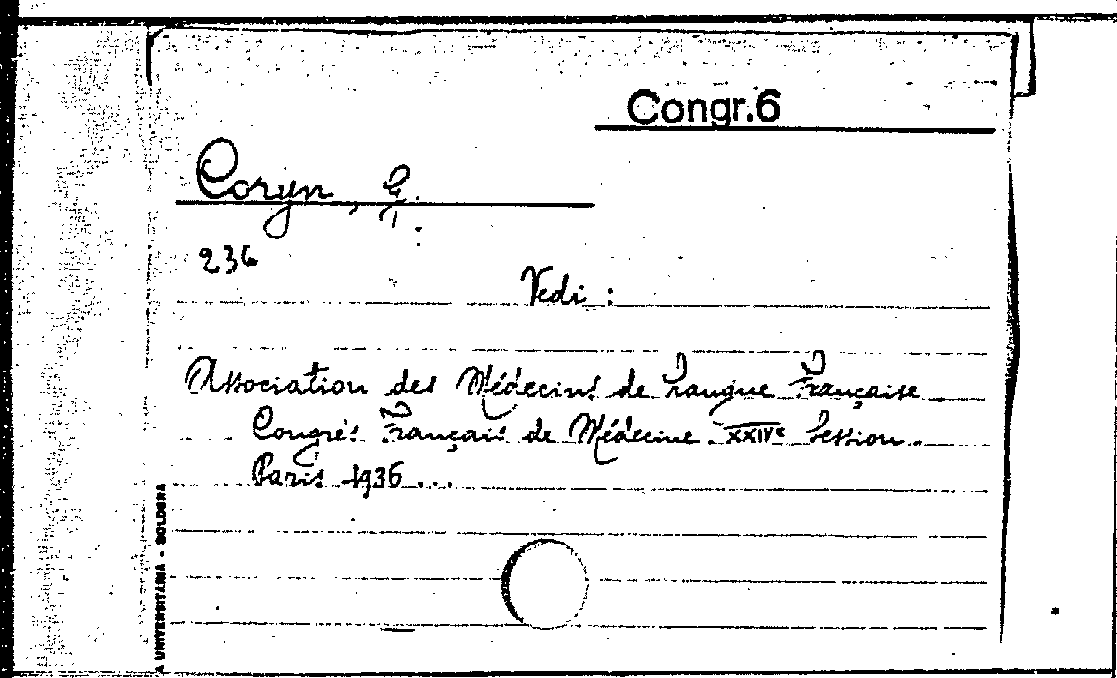 Congr.6
Coryn, G.
236
Vedi :
Association des Médecins de Langue Française
Congrés Français de Médecine XXIVe Session.
Paris 1936...
A UNIVERSITARIA - BOLOGNA